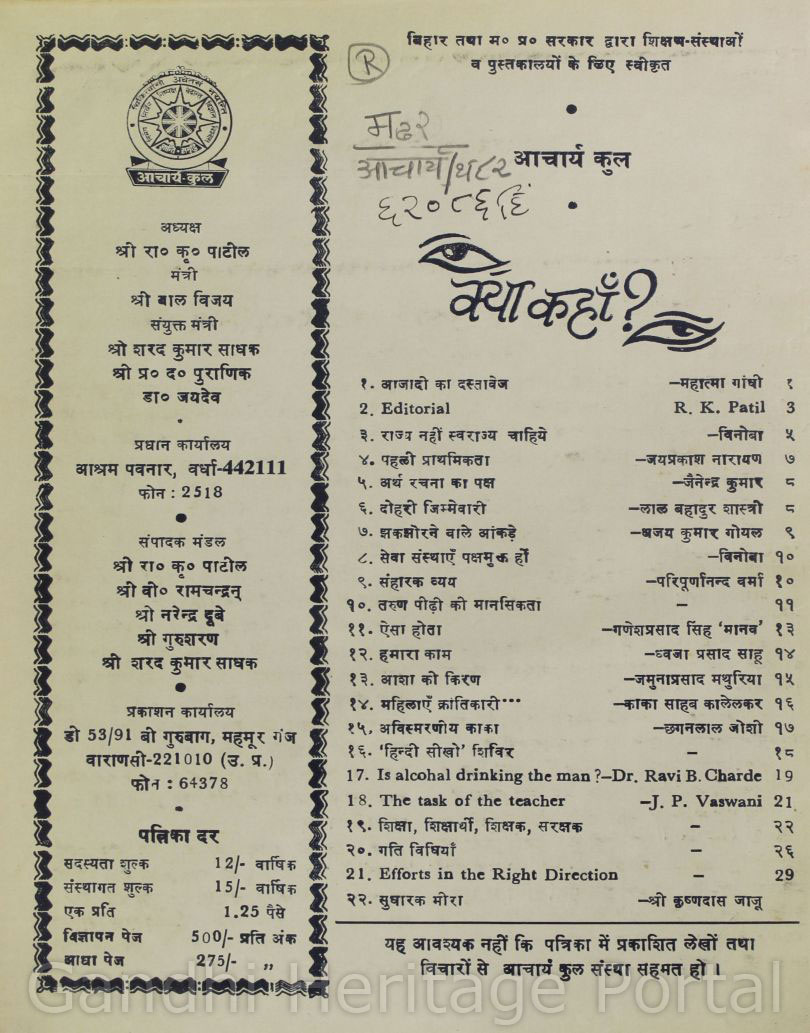 आचार्य-कुल
अध्यक्ष
श्री रा० कृ० पाटील
मंत्री
श्री बाल विजय
संयुक्त मंत्री
श्री शरद कुमार साधक
श्री प्र० द० पुराणिक
डा० जयदेव
प्रधान कार्यालय
आश्रम पवनार, वर्धा-442111
फोन : 2518
संपादक मंडल
श्री रा० कृ० पाटील
श्री वी० रामचन्द्रन्
श्री नरेन्द्र दूबे
श्री गुरुशरण
श्री शरद कुमार साधक
प्रकाशन कार्यालय
डी 53/91 बी गुरुबाग, महमूर गंज
वाराणसी-221010 (उ. प्र.)
फोन : 64378
पत्रिका दर
सदस्यता शुल्क 12/- वार्षिक
संस्थागत शुल्क 15/- वार्षिक
एक प्रति 1.25 पैसे
विज्ञापन पेज 500/- प्रति अंक
आधा पेज 275/- ,,
बिहार तथा म० प्र० सरकार द्वारा शिक्षण-संस्थाओं
व पुस्तकालयों के लिए स्वीकृत
R
आचार्य कुल
६२०८६
क्या कहाँ?
१. आजादी का दस्तावेज –महात्मा गांधी १
2. Editorial R. K. Patil 3
३. राज्य नहीं स्वराज्य चाहिये –विनोबा ५
४. पहली प्राथमिकता –जयप्रकाश नारायण ७
५. अर्थ रचना का पक्ष –जैनेन्द्र कुमार ८
६. दोहरी जिम्मेवारी –लाल बहादुर शास्त्री ८
७. झकझोरने वाले आंकड़े –अजय कुमार गोयल ९
८. सेवा संस्थाएँ पक्षमुक्त हों –विनोबा १०
९. संहारक व्यय –परिपूर्णानन्द वर्मा १०
१०. तरुण पीढ़ी की मानसिकता – ११
११. ऐसा होता –गणेशप्रसाद सिंह ‘मानव’ १३
१२. हमारा काम –ध्वजा प्रसाद साहू १४
१३. आशा की किरण –जमुनाप्रसाद मथुरिया १५
१४. महिलाएँ क्रांतिकारी... –काका साहब कालेलकर १६
१५. अविस्मरणीय काका –छगनलाल जोशी १७
१६. ‘हिन्दी सीखो’ शिविर – १८
17. Is alcohal drinking the man ?–Dr. Ravi B. Charde 19
18. The task of the teacher –J. P. Vaswani 21
१९. शिक्षा, शिक्षार्थी, शिक्षक, सरक्षक – २२
२०. गति विधियाँ – २६
21. Efforts in the Right Direction – 29
२२. सुधारक मीरा –श्री कृष्णदास जाजू
यह आवश्यक नहीं कि पत्रिका में प्रकाशित लेखों तथा
विचारों से आचार्य कुल संस्था सहमत हो ।
Gandhi Heritage Portal